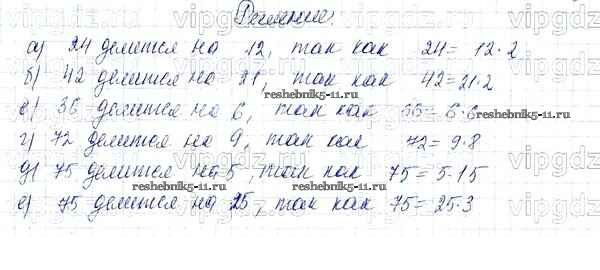 Решение.
а) 24 делится на 12, так как 24 = 12·2
б) 42 делится на 21, так как 42 = 21·2
в) 36 делится на 6, так как 36 = 6·6
reshebnik5-11.ru
reshebnik5-11.ru
г) 72 делится на 9, так как 72 = 9·8
д) 75 делится на 5, так как 75 = 5·15
reshebnik5-11.ru
reshebnik5-11.ru
е) 75 делится на 25, так как 75 = 25·3
vipgdz.ru
vipgdz